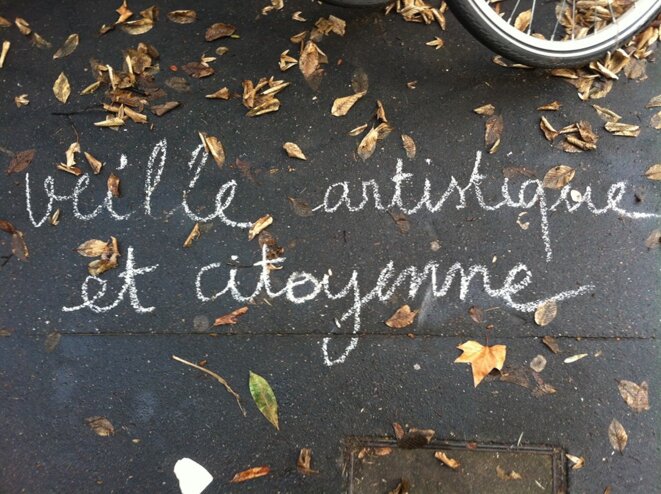 veille artistique
et citoyenne